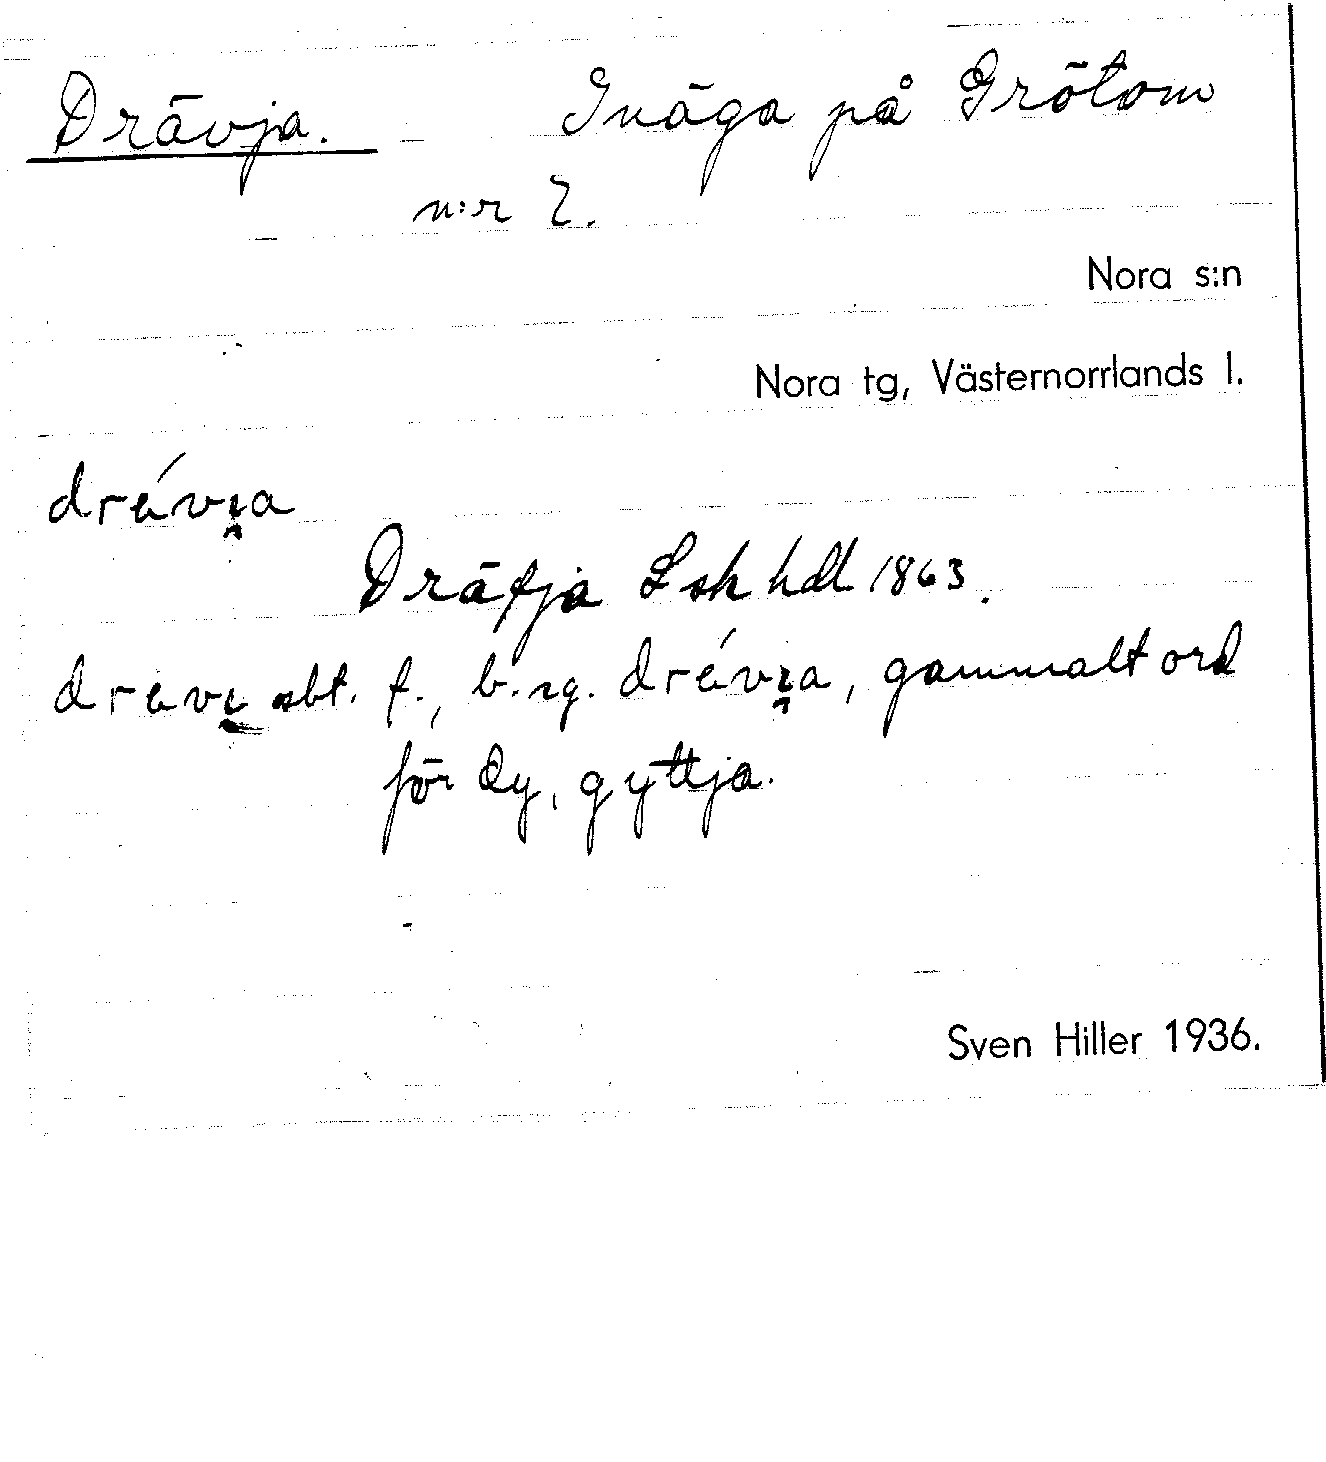 Drävja. Inäga på Grötom
n:r 2.
Nora s:n
Nora tg, Västernorrlands l.
drévı̯a
Dräfja Lsk hdl 1863.
drevı sbt. f., b. sg. drévı̯a, gammalt ord
för dy, gyttja.
Sven Hiller 1936.